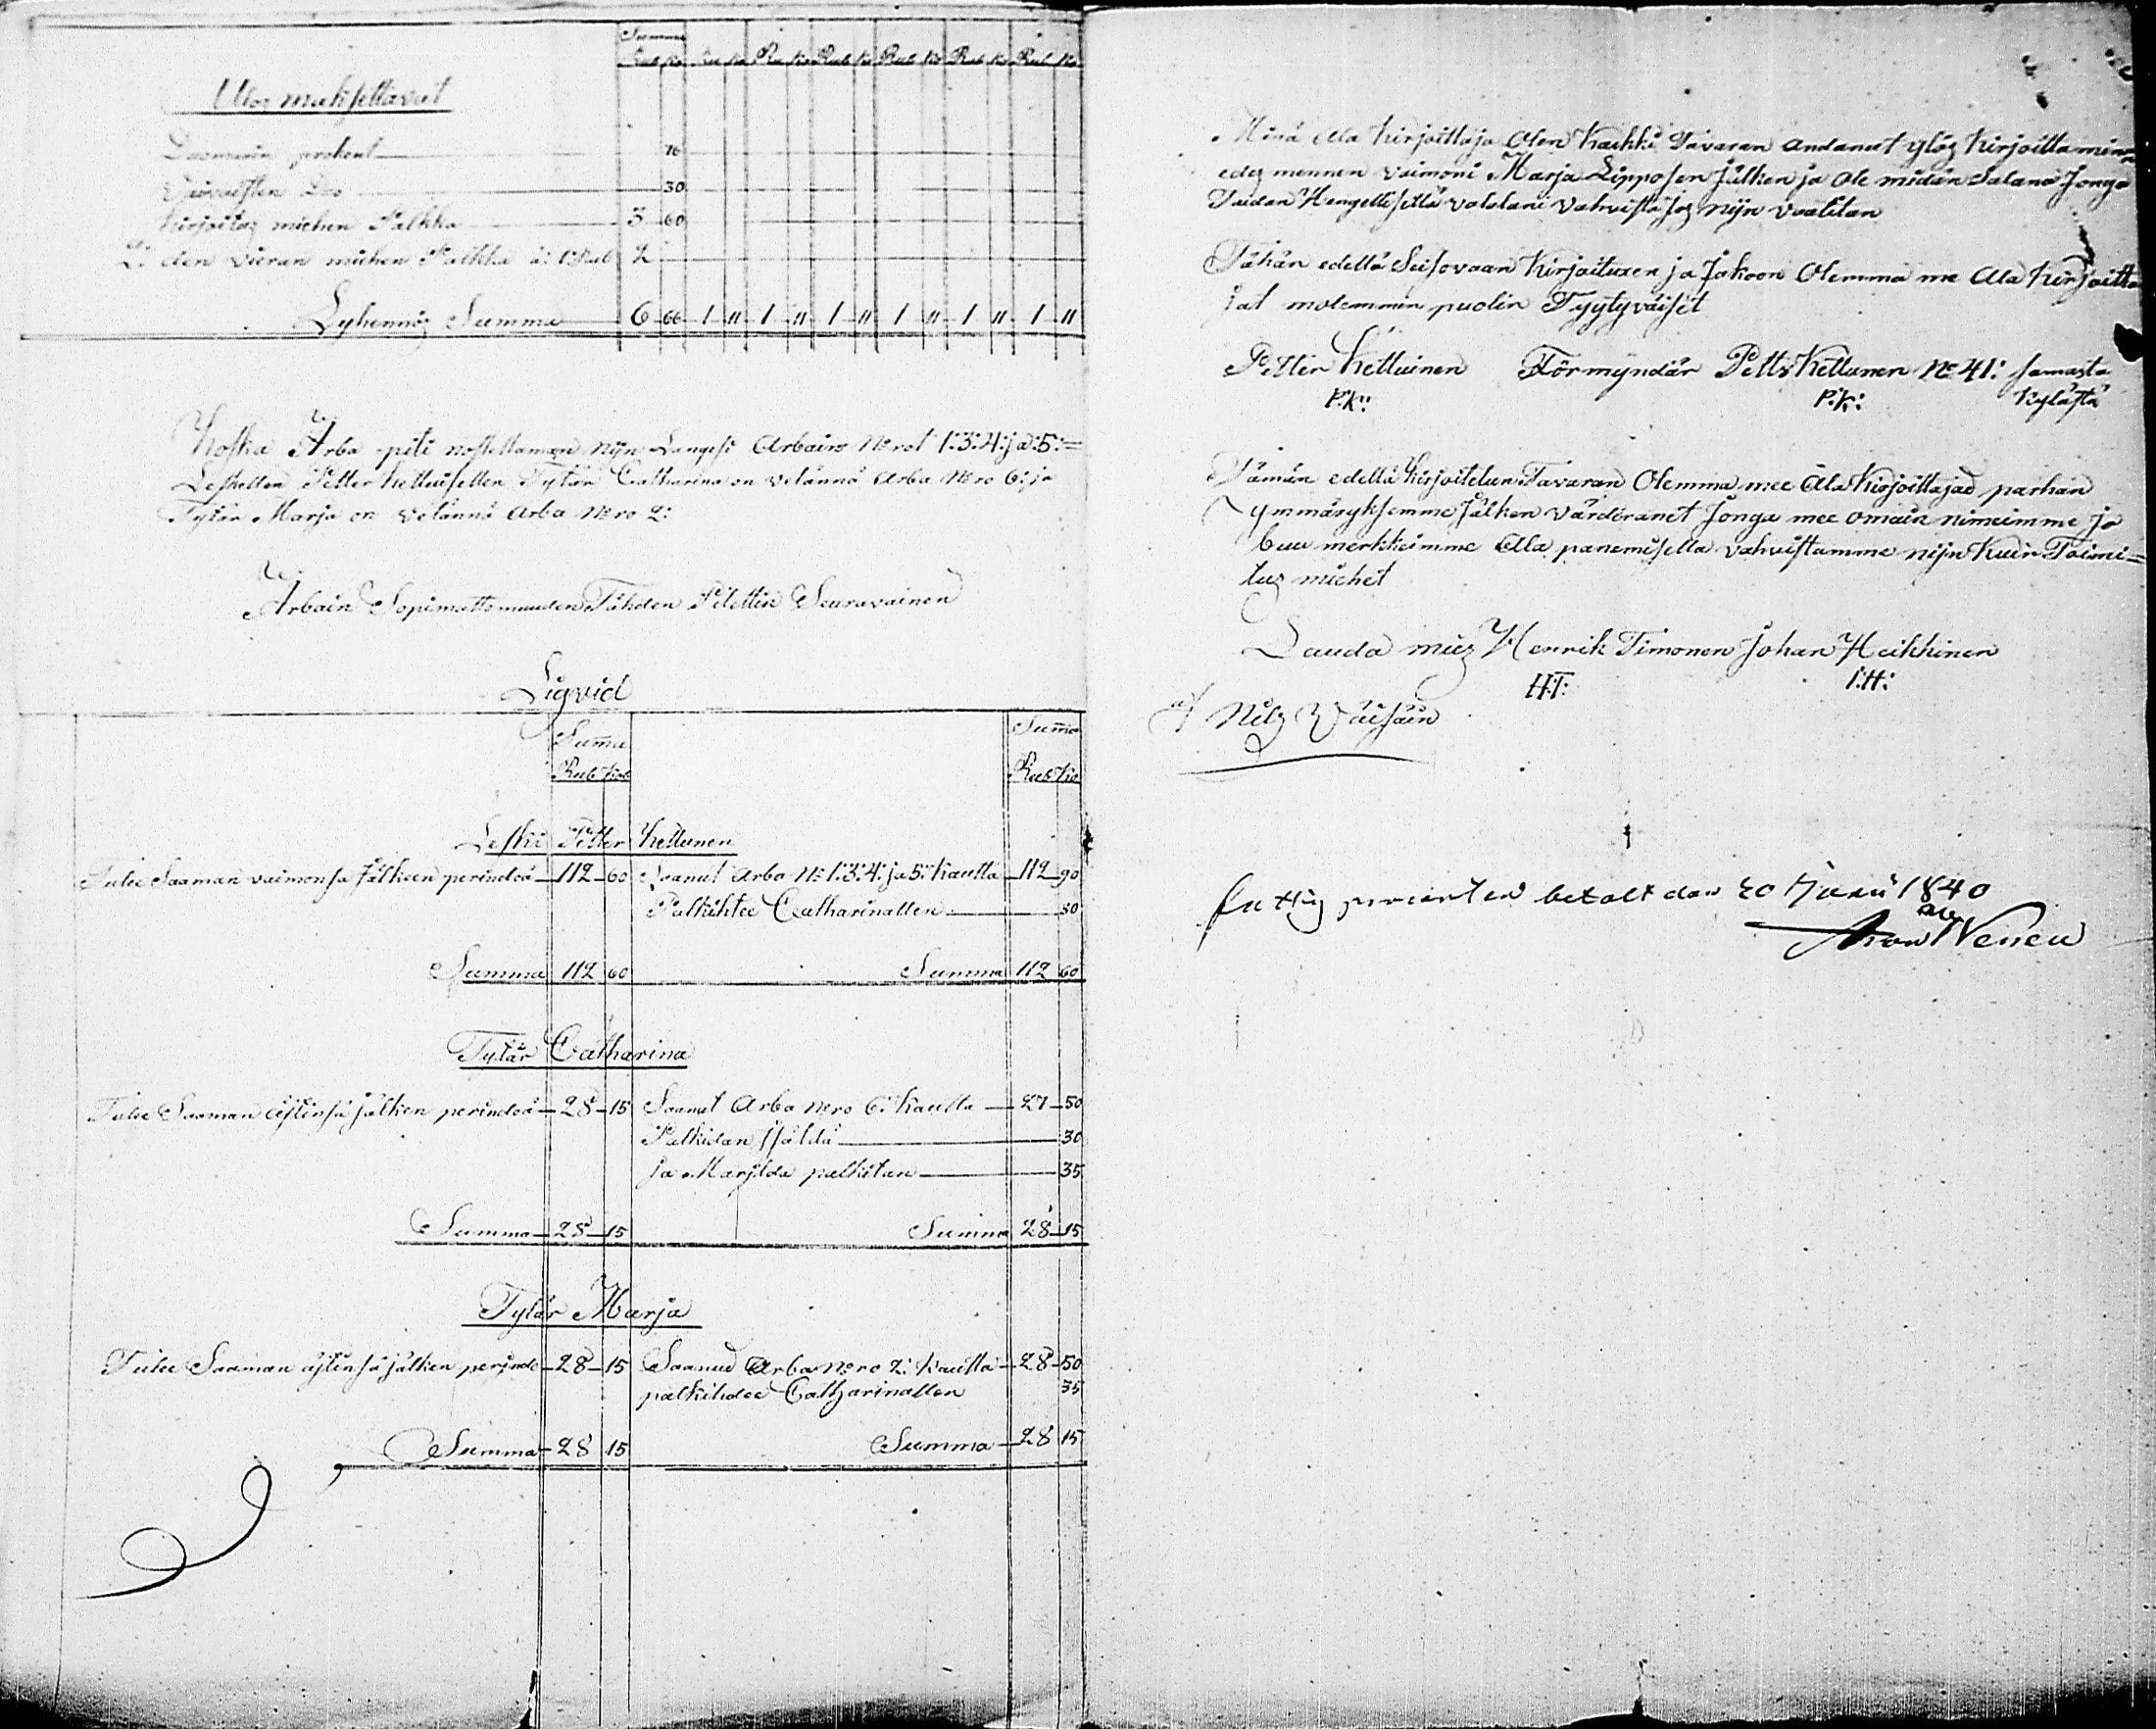 Summa
Rub Ko Ru Ko Ru Ko Rub Ko Rub Ko Rub Ko Rub Ko
Ulos maksettavat
Duomarin prosent 76
Vaivaisten Oso 30
Kirjoitos miehen Palkka 3 60
2: den vieran miehen Palkka a: 1 Rub 2
Lyhennös Summa 6 66 1 11 1 11 1 11 1 11 1 11 1 11
Koska Arba piti nostettaman nijn Langesi Arbain Nrot 1:3:4: ja:5:=
Leskellen Petter Kettuisellen Tytär Catharina on vetännä Arba Nro 6: ja
Tytär Marja on vetännä Arba Nro 2:
Arbain Sopimattomuuden Tähden Pitettin Seuravainen
Liqvid
Suma Suma
Rub Kob Rub Ko
Leski Petter Kettunen
Tulee Saaman vaimonsa Jälkeen perindöä 112 60 Saanut Arba No 1:3:4: ja 5: Kautta 112 90
Palkihtee Catharinallen 30
Summa 112 60 Summa 112 60
Tytär Catharina
Tulee Saaman äjtinsä jälken perindöä 28 15 Saanut Arba Nro 6: Kautta 27 50
Palkidan Isäldä 30
ja Marjalda palkitan 35
Summa 28 15 Summa 28 15
Tytär Marja
Tulee Saaman äjtinsä jälken perindö 28 15 Saanud Arba Nro 2: Kautta 28 50
palkihdee Catharinallen 35
Summa 28 15 Summa 28 15
Minä ala Kirjoittaja Olen Kaikki Tavaran andanut ylös Kirjoittamin
edes mennen vaimoni Marja Lipposen Jälken ja ole mitän Salana Jonga
Taidan Hengellisellä valalani vahvista Jos nijn vaatitan
Tähän edellä Seisovaan Kirjoituxen ja Jakoon Olemma me Ala Kirjoitta
jat molemmin puolin Tyytyväiset
Petter Kettuinen Förmyndär Pettr Kettunen No 41: samasta
P:K: P:K: Kylästä
Tämän edellä Kirjoitetun Tavaran Olemma mee Ala Kirjoittajad parhan
Ymmärryksemme Jälken värderanet Jonga mee omain nimeimme ja
buu merkkeimme Ala panemisella vahvistamme nijn Kuin Toimi=
tus miehet
Lauda mies Henrik Timonen Johan Heikkinen
H:T: I:H:
af Nils Väisäin
fattig procenten betalt den 20 Junii 1840
Aron Nenen